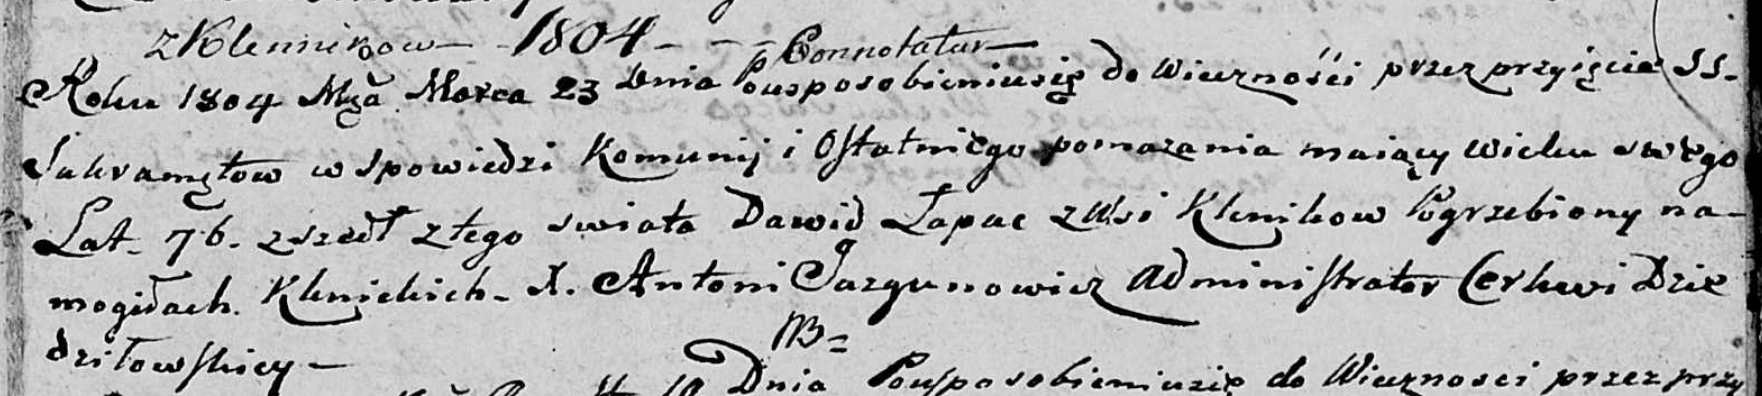 z Klennikow — 1804 - - - Connotatur —
Roku 1804 Mca Marca 23 Dnia Pousposobieniusię do Wieczności przez przyięcie SS.
Sakramętow w spowiedzi Komunij i Ostatniego pomazania maiący wieku swego
Lat 76. zszedł z tego swiata Dawid Łapac z Wsi Klenikow Pogrzebiony na
mogiłach Klenickich. X. Antoni Jazgunowicz Administrator Cerkwi Dzie
dziłowskiey —
NB =
Dnia Pousposobieniusię do Wieczności przez przy